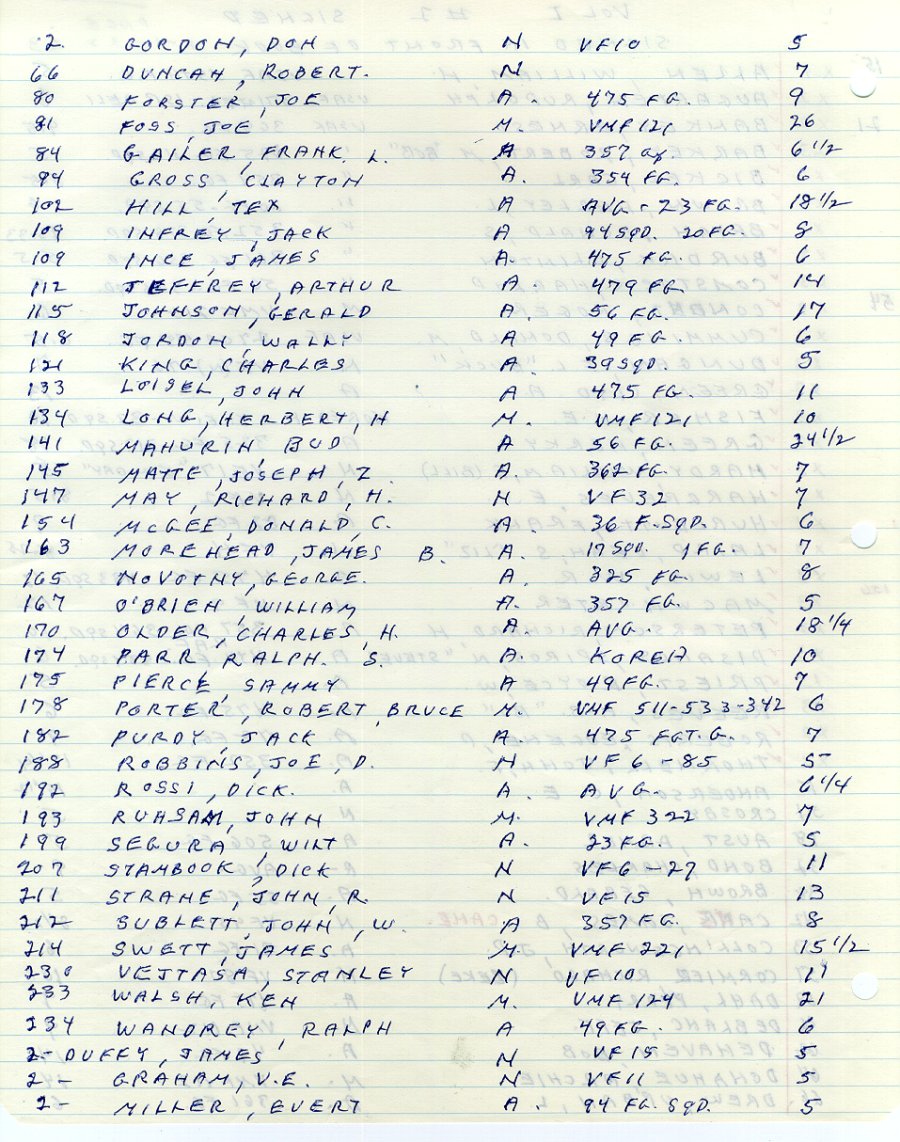 2. GORDON, DON N VF10 5
66 DUNCAN, ROBERT. N 7
80 FORSTER, JOE A. 475 FG. 9
81 FOSS, JOE M. VMF121 26
84 GAILER, FRANK. L. A 357 6 1/2
94 GROSS, CLAYTON A. 354 FG. 6
102 HILL, TEX A AVG - 23 FG. 18 1/2
109 INFREY, JACK A 94 SQD. 20 FG. 8
109 INCE, JAMES A. 475 FG. 6
112 JEFFREY, ARTHUR A. 479 FG. 14
115 JOHNSON, GERALD A. 56 FG. 17
118 JORDON, WALLY A. 49 FG. 6
121 KING, CHARLES A. 39 SQD. 5
133 LOISEL, JOHN A 475 FG. 11
134 LONG, HERBERT, H M. VMF121 10
141 MAHURIN, BUD A 56 FG. 24 1/2
145 MATTE, JOSEPH, Z. A. 362 FG. 7
147 MAY, RICHARD, H. N VF32 7
154 McGEE, DONALD, C. A. 36 F. SQD. 6
163 MOREHEAD, JAMES B. A. 17 SQD. 1 FG. 7
165 NOVOTNY, GEORGE. A. 325 FG. 8
167 O'BRIEN, WILLIAM A. 357 FG. 5
170 OLDER, CHARLES, H. A. AVG. 18 1/4
174 PARR, RALPH. S. A. KOREA 10
175 PIERCE, SAMMY A 49 FG. 7
178 PORTER, ROBERT, BRUCE M. VMF 511-533-342 6
182 PURDY, JACK A. 475 FGT. G. 7
188 ROBBINS, JOE, D. N VF6 - 85 5
192 ROSSI, DICK. A. AVG. 6 1/4
193 RUHSAM, JOHN M. VMF 322 7
199 SEGURA, WILT A. 23 FG. 5
207 STAMBOOK, DICK N VF6 - 27 11
211 STRANE, JOHN, R. N VF15 13
212 SUBLETT, JOHN, W. A 357 FG. 8
214 SWETT, JAMES M VMF 221 15 1/2
230 VEJTASA, STANLEY N VF10 11
233 WALSH, KEN M. VMF 124 21
234 WANDREY, RALPH A 49 FG. 6
2- DUFFY, JAMES N VF15 5
2- GRAHAM, V.E. N VF11 5
2- MILLER, EVERT A. 94 FG. SQD. 5